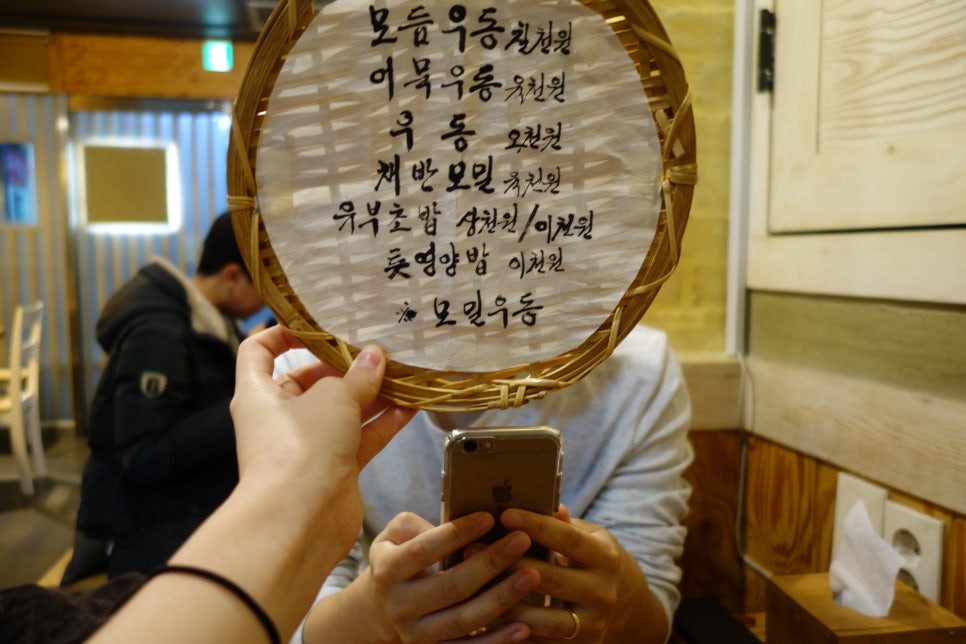 모듬우동 칠천원
어묵우동 육천원
우동 오천원
채반모밀 육천원
유부초밥 삼천원/이천원
영양밥 이천원
※ 모밀우동